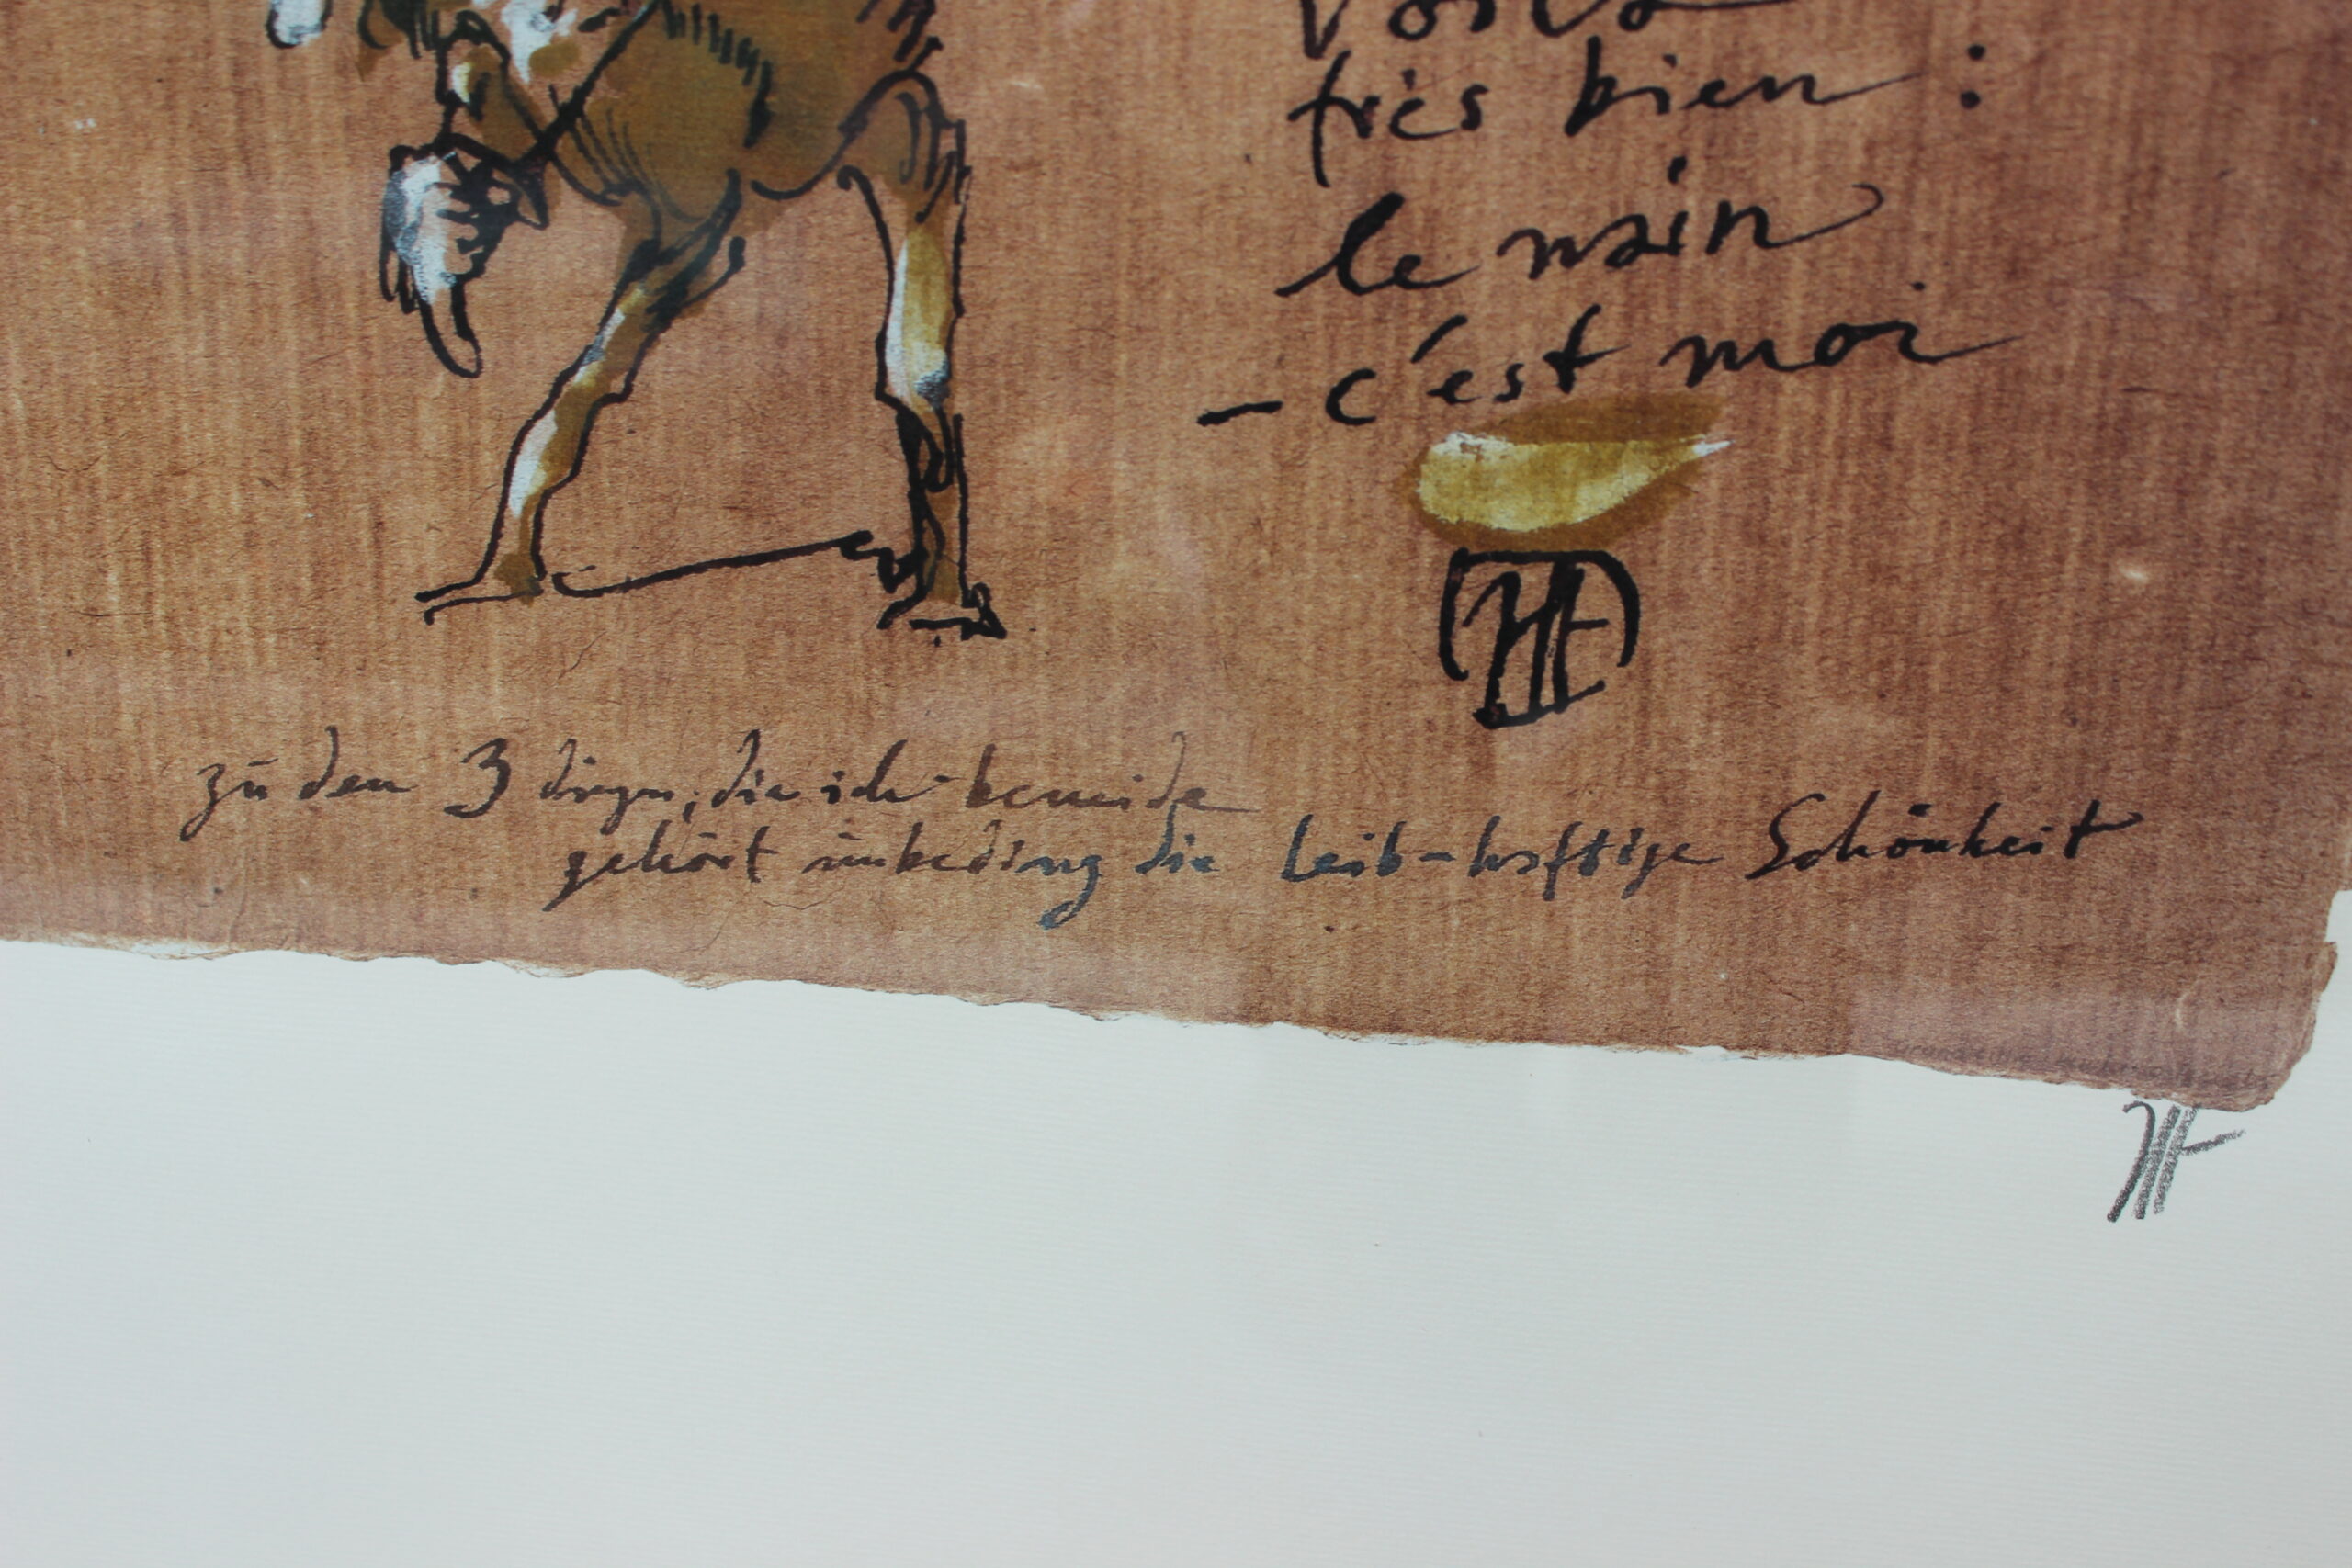 Voilà
très bien :
le nain
– c'est moi
zu den 3 dingen, die ich beneide
gehört unbeding die Leib-haftige Schönheit